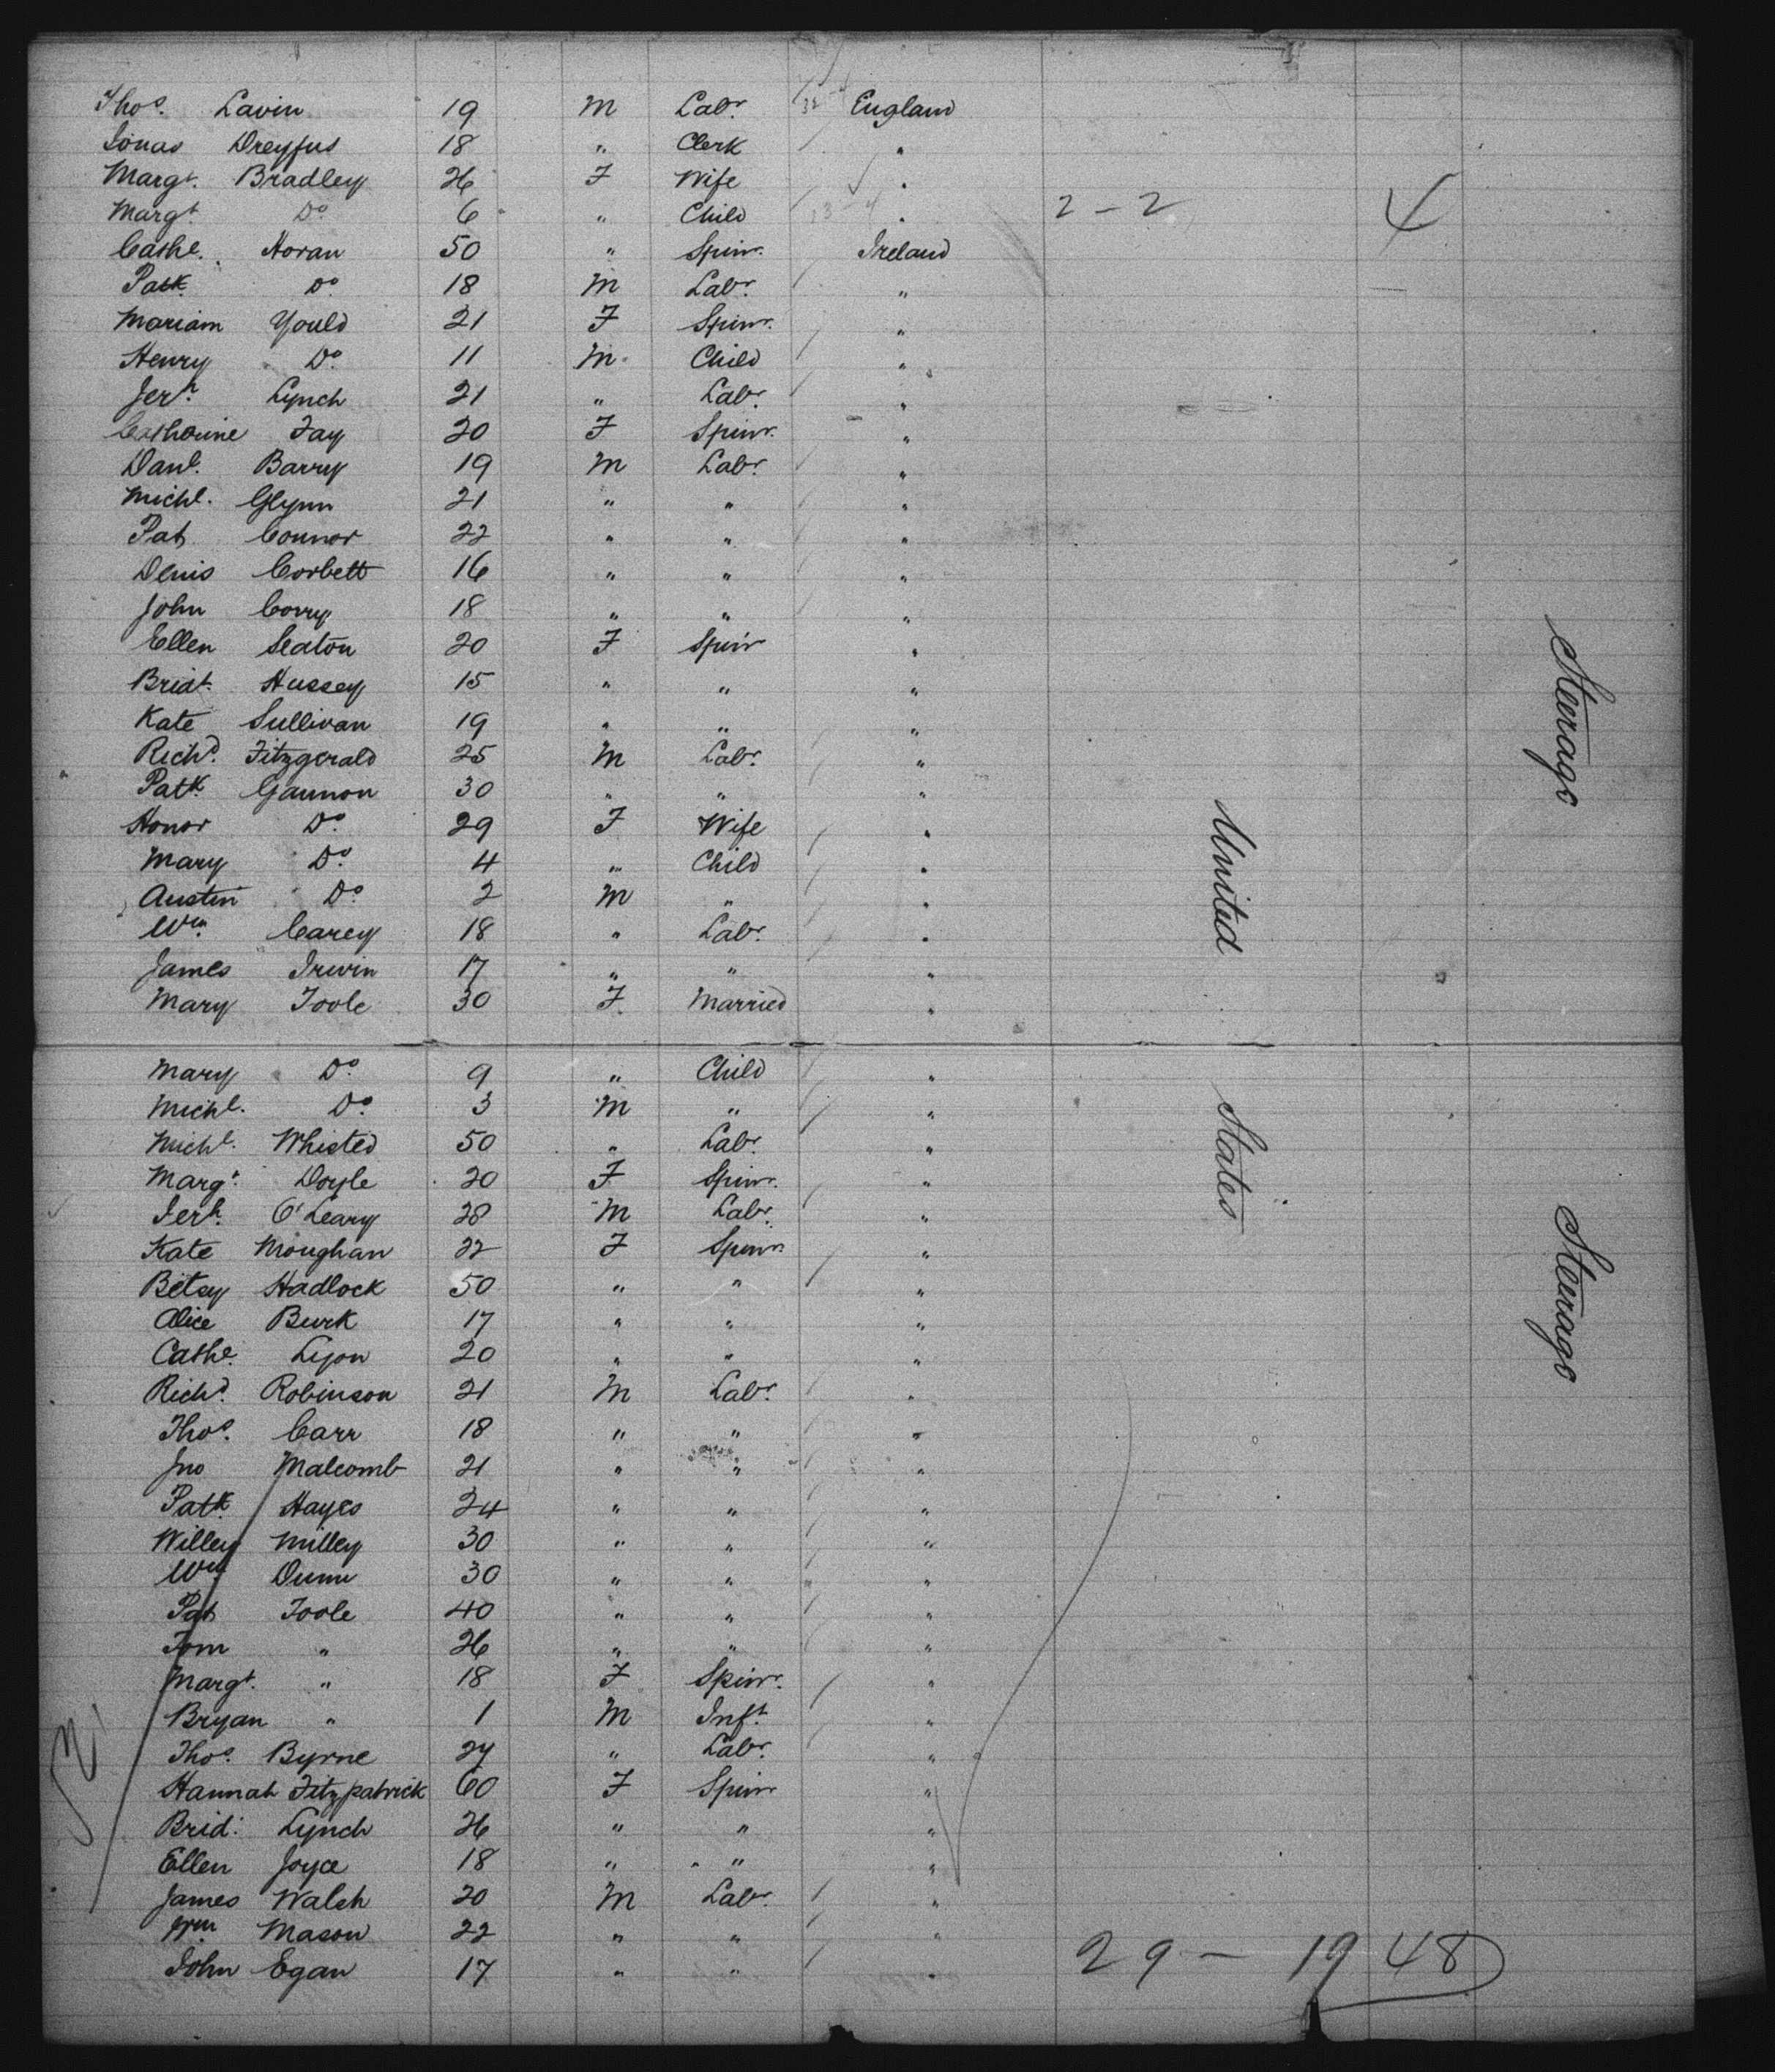 Thos. Lavin 19 M Labr. England
Jonas Dreyfus 18 " Clerk "
Margt. Bradley 26 F Wife "
Margt. Do. 6 " Child " 2 - 2 4
Cathe. Horan 50 " Spinr. Ireland
Patk. Do. 18 M Labr. "
Mariam Yould 21 F Spinr. "
Henry Do. 11 M Child "
Jerh. Lynch 21 " Labr. "
Catherine Fay 20 F Spinr. "
Danl. Barry 19 M Labr. "
Michl. Glynn 21 " " "
Pat Connor 22 " " "
Denis Corbett 16 " " "
John Corry 18 " " "
Ellen Seaton 20 F Spinr "
Bridt. Hussey 15 " " "
Kate Sullivan 19 " " "
Richd. Fitzgerald 25 M Labr. "
Patk. Gannon 30 " " "
Honor Do. 29 F Wife "
Mary Do. 4 " Child "
Austin Do. 2 M " "
Wm. Carey 18 " Labr. "
James Irwin 17 " " "
Mary Toole 30 F. Married "
Mary Do. 9 " Child "
Michl. Do. 3 M " "
Michl. Whisted 50 " Labr. "
Margt. Doyle 20 F Spinr. "
Jerh. O'Leary 28 M Labr. "
Kate Moughan 22 F Spinr. "
Betsy Hadlock 50 " " "
Alice Burk 17 " " "
Cathe. Lyon 20 " " "
Richd. Robinson 21 M Labr. "
Thos. Carr 18 " " "
Jno Malcomb 21 " " "
Patk. Hayes 24 " " "
Willey Milley 30 " " "
Wm Dunn 30 " " "
Pat Toole 40 " " "
Tom " 26 " " "
Margt. " 18 F Spinr. "
Bryan " 1 M Inft. "
Thos. Byrne 27 " Labr. "
Hannah Fitzpatrick 60 F Spinr "
Brid: Lynch 26 " " "
Ellen Joyce 18 " " "
James Walsh 20 M Labr. "
Wm Mason 22 " " "
John Egan 17 " " " 29 - 19 48
United States
Steerage
Steerage